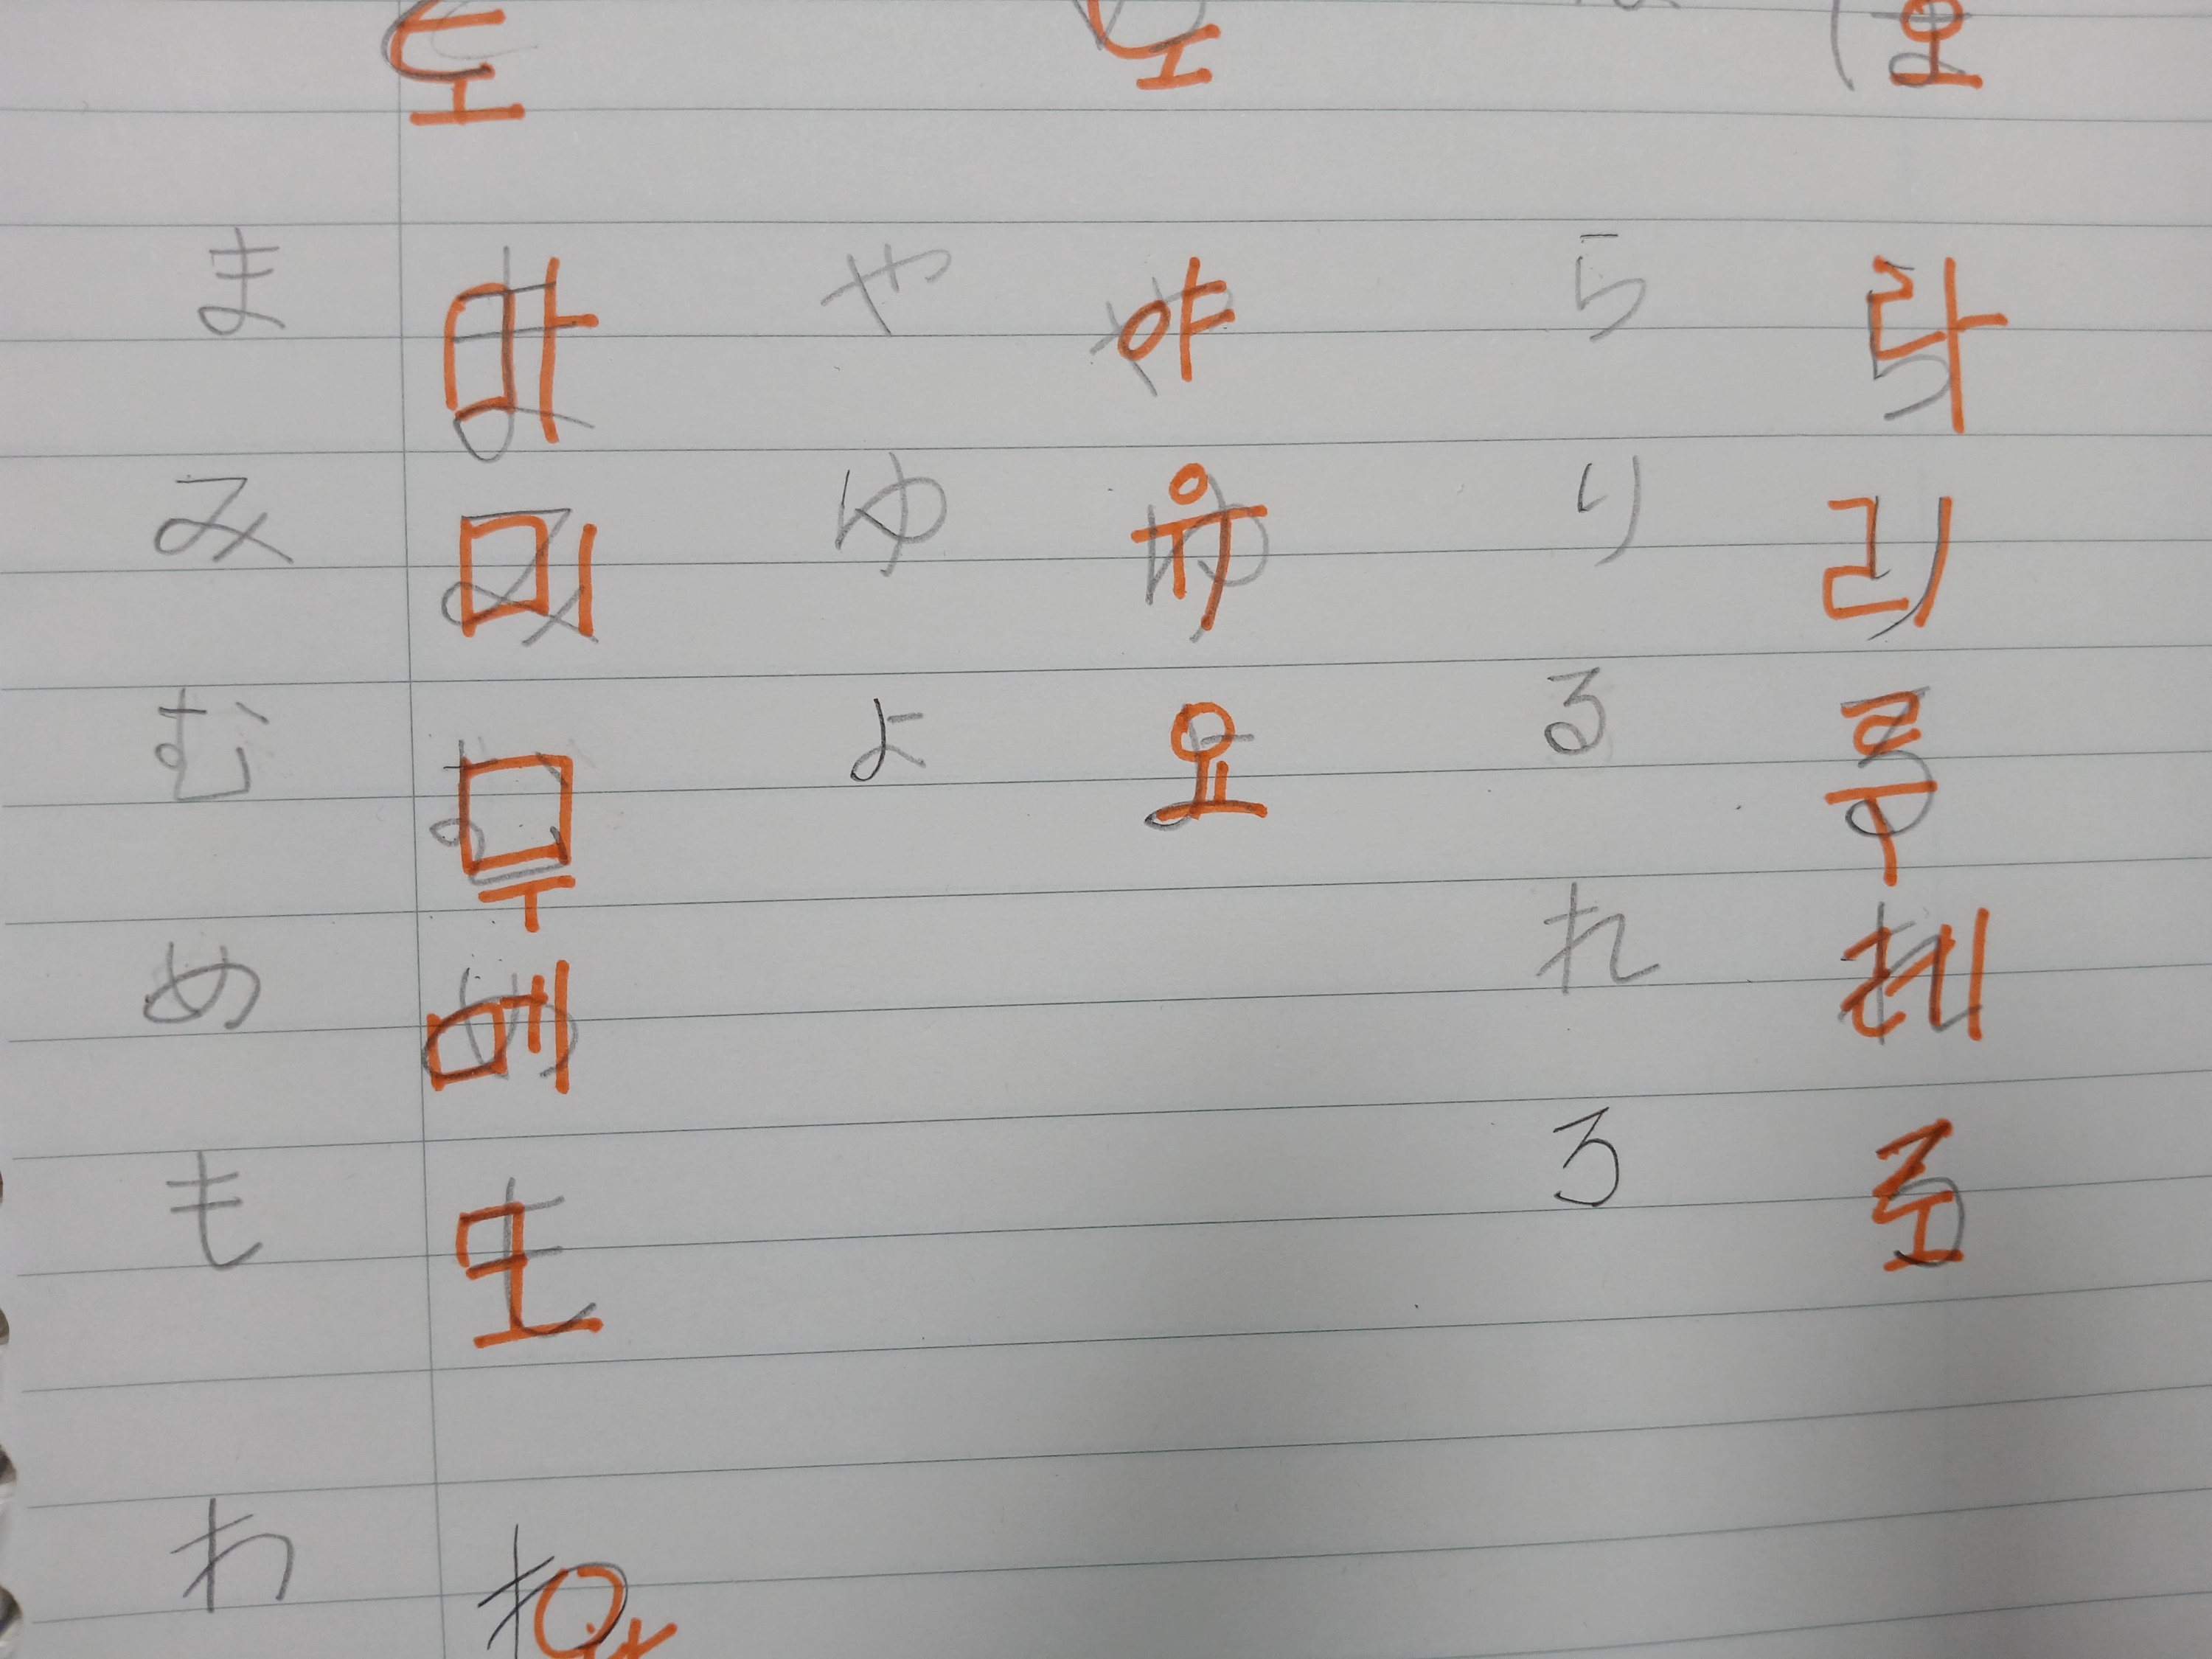 토 노 호
ま 마 や 야 ら 라
み 미 ゆ 유 り 리
む 무 よ 요 る 루
め 메 れ 레
も 모 ろ 로
わ 와